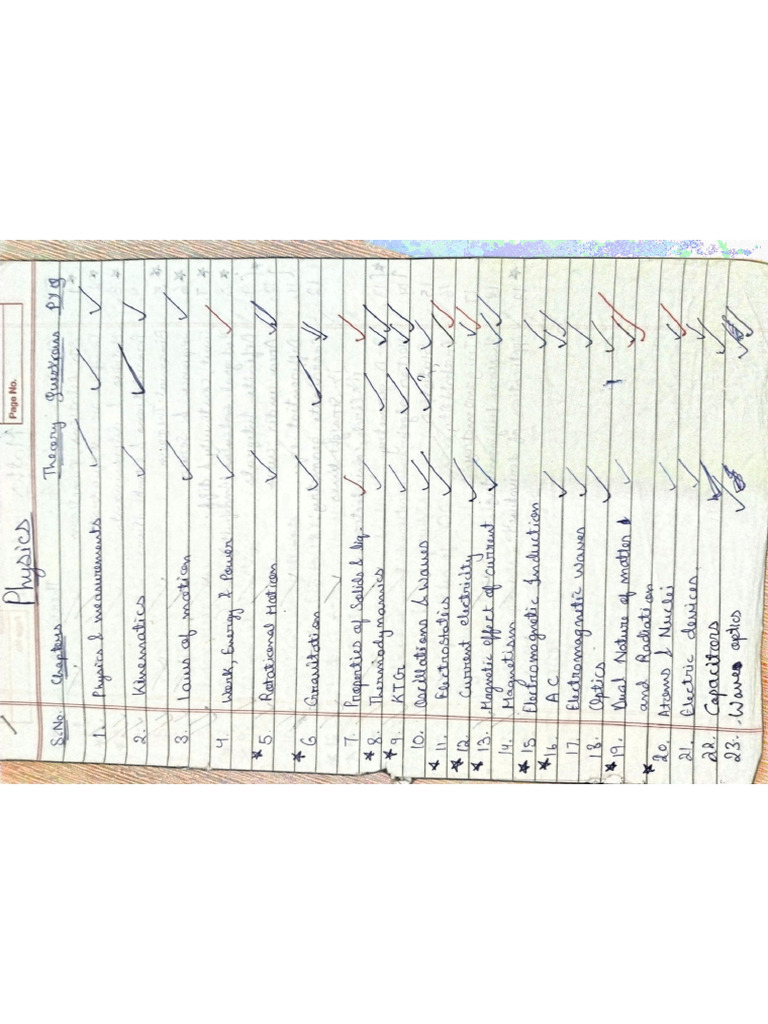 Page No.
Physics
S.No. Chapters Theory Questions PYQ
1. Physics & measurements ✓ ✓ ✓
2. Kinematics ✓ ✓ ✓
3. Laws of motion ✓ ✓
4. Work, Energy & Power ✓ ✓
★ 5. Rotational Motion ✓ ✓
★ 6. Gravitation ✓ ✓ ✓
7. Properties of Solids & liq. ✓ ✓
★ 8. Thermodynamics ✓ ✓ ✓
★ 9. KTG ✓ ✓ ✓
10. Oscillations & waves ✓ ✓ ✓
★ 11. Electrostatics ✓ ✓
★ 12. Current electricity ✓ ✓
★ 13. Magnetic effect of current ✓ ✓
14. Magnetism
★ 15. Electromagnetic Induction ✓
★ 16. AC ✓ ✓
17. Electromagnetic waves ✓ ✓
18. Optics ✓ ✓
★ 19. Dual Nature of matter ✓ ✓
and Radiation
★ 20. Atoms & Nuclei ✓ ✓
21. Electric devices. ✓ ✓
22. Capacitors ✓ ✓
23. Waves optics ✓